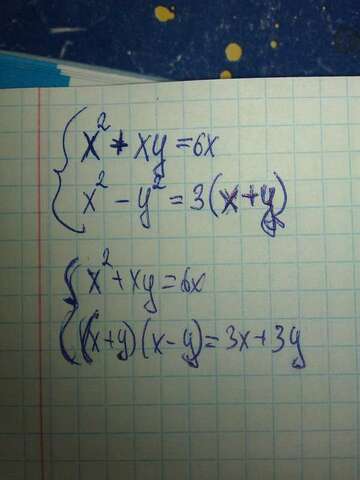 x² + xy = 6x
x² - y² = 3(x+y)
x² + xy = 6x
(x+y)(x-y) = 3x+3y